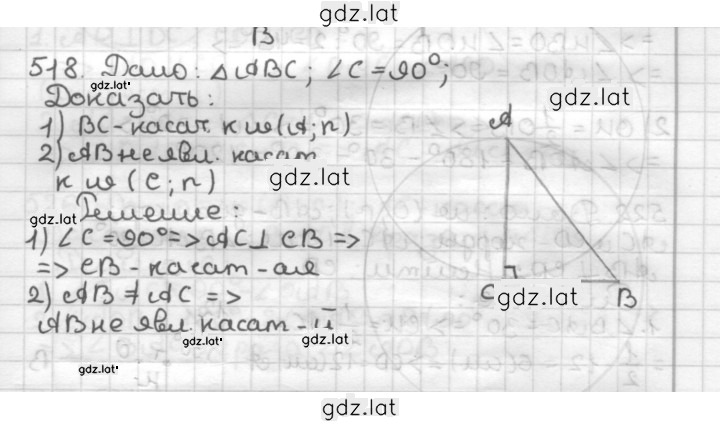 gdz.lat
В
518. Дано: △ABC; ∠C = 90°;
gdz.lat
Доказать:
gdz.lat
1) BC - касат. к ω(A; r)
2) AB не явл. касат
к ω (C; r)
gdz.lat
Решение:
gdz.lat
1) ∠C = 90° => AC ⊥ CB =>
=> CB - касат-ая
2) AB ≠ AC =>
AB не явл. касат-й
gdz.lat
gdz.lat
gdz.lat
A
C
B
gdz.lat
gdz.lat